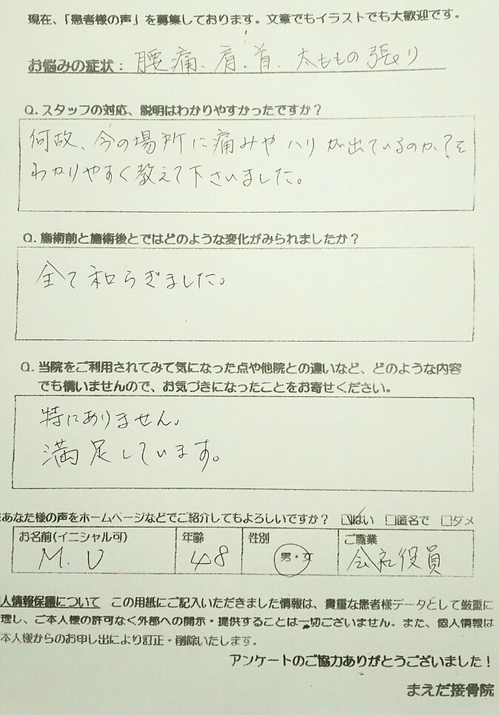 現在、「患者様の声」を募集しております。文章でもイラストでも大歓迎です。
お悩みの症状：腰痛、肩、首、太ももの張り
Q. スタッフの対応、説明はわかりやすかったですか？
何故、今の場所に痛みやハリが出ているのか？を
わかりやすく教えて下さいました。
Q. 施術前と施術後とではどのような変化がみられましたか？
全て和らぎました。
Q. 当院をご利用されてみて気になった点や他院との違いなど、どのような内容
でも構いませんので、お気づきになったことをお寄せください。
特にありません。
満足しています。
あなた様の声をホームページなどでご紹介してもよろしいですか？ ☑はい □匿名で □ダメ
お名前(イニシャル可) 年齢 性別 ご職業
M.U 48 男・女 会社役員
人情報保護について この用紙にご記入いただきました情報は、貴重な患者様データとして厳重に
理し、ご本人様の許可なく外部への開示・提供することは一切ございません。また、個人情報は
本人様からのお申し出により訂正・削除いたします。
アンケートのご協力ありがとうございました！
まえだ接骨院